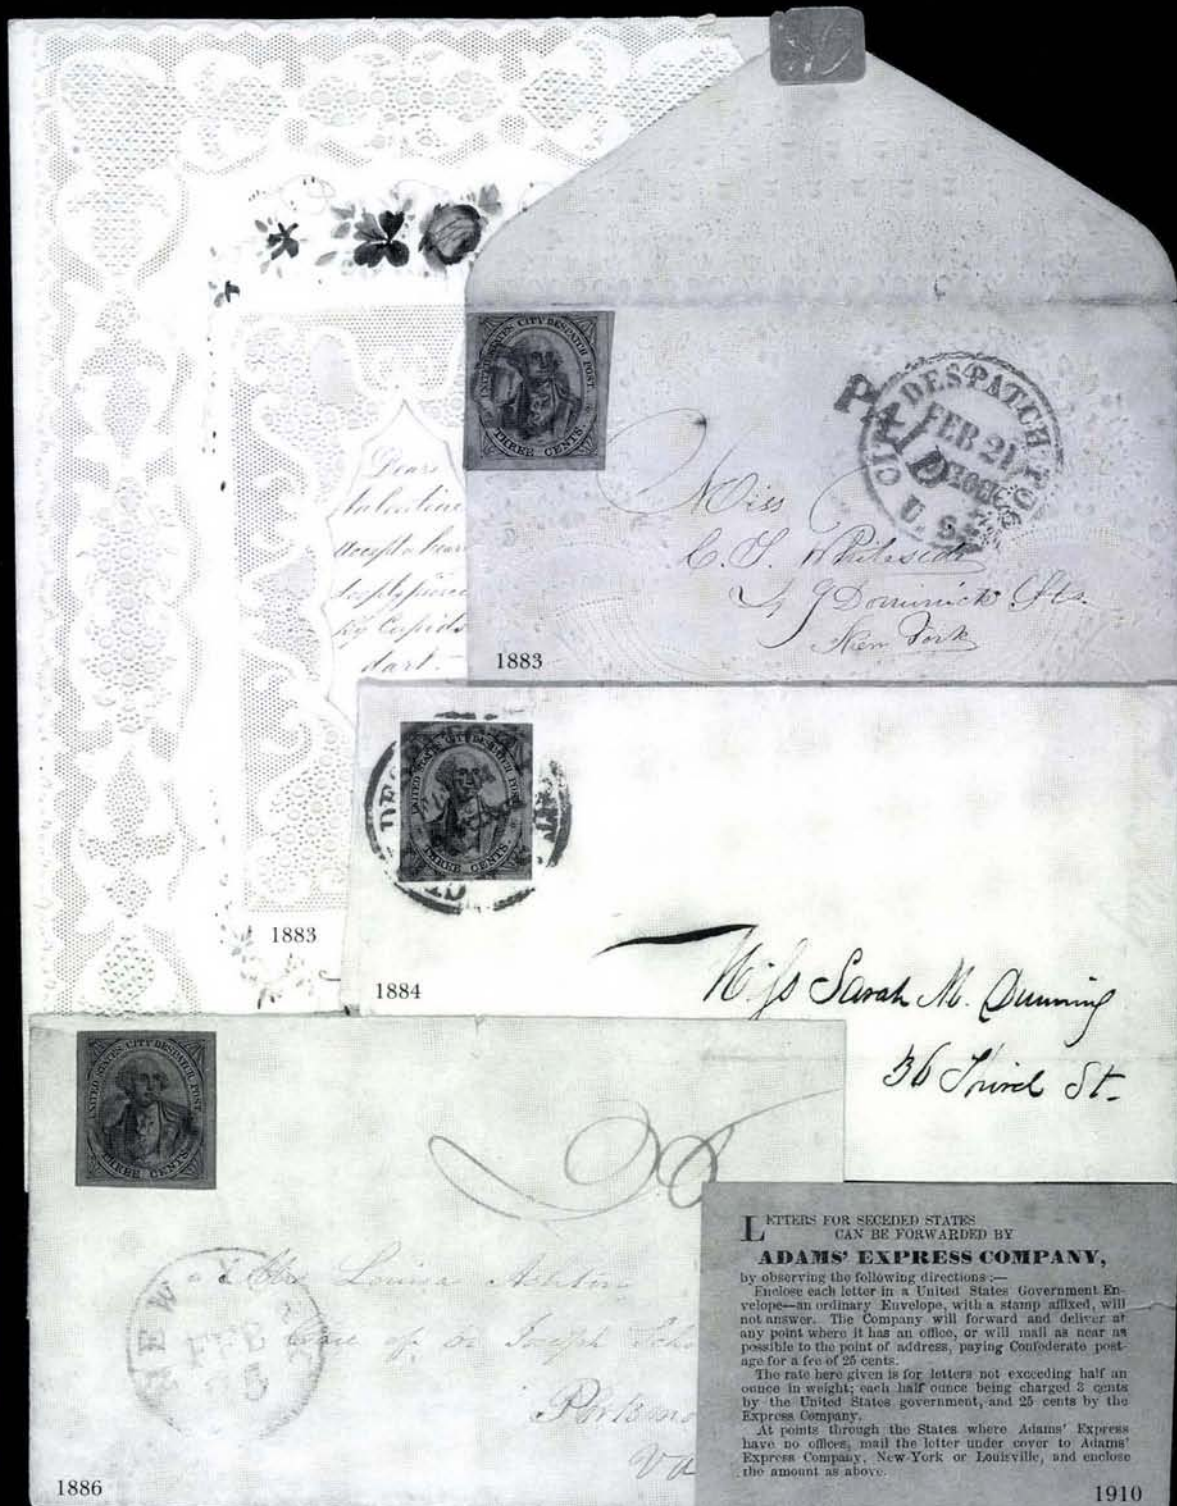 UNITED STATES CITY DESPATCH POST
THREE CENTS
CITY DESPATCH POST
PAID
FEB 21
U. S.
Miss
C. S. Whiteside
49 Dominick Sts.
New York
1883
Dear
Valentine
accept a hear
deeply pierc
by Cupids
dart.
1883
UNITED STATES CITY DESPATCH POST
THREE CENTS
Miss Sarah M. Dunning
36 Third St.
1884
UNITED STATES CITY DESPATCH POST
THREE CENTS
NEW
FEB
Mrs Louisa Ashton
Care of Joseph
Portsmo
Va
1886
LETTERS FOR SECEDED STATES
CAN BE FORWARDED BY
ADAMS' EXPRESS COMPANY,
by observing the following directions :—
Enclose each letter in a United States Government En-
velope—an ordinary Envelope, with a stamp affixed, will
not answer. The Company will forward and deliver at
any point where it has an office, or will mail as near as
possible to the point of address, paying Confederate post-
age for a fee of 25 cents.
The rate here given is for letters not exceeding half an
ounce in weight; each half ounce being charged 3 cents
by the United States government, and 25 cents by the
Express Company.
At points through the States where Adams' Express
have no offices, mail the letter under cover to Adams'
Express Company, New-York or Louisville, and enclose
the amount as above.
1910